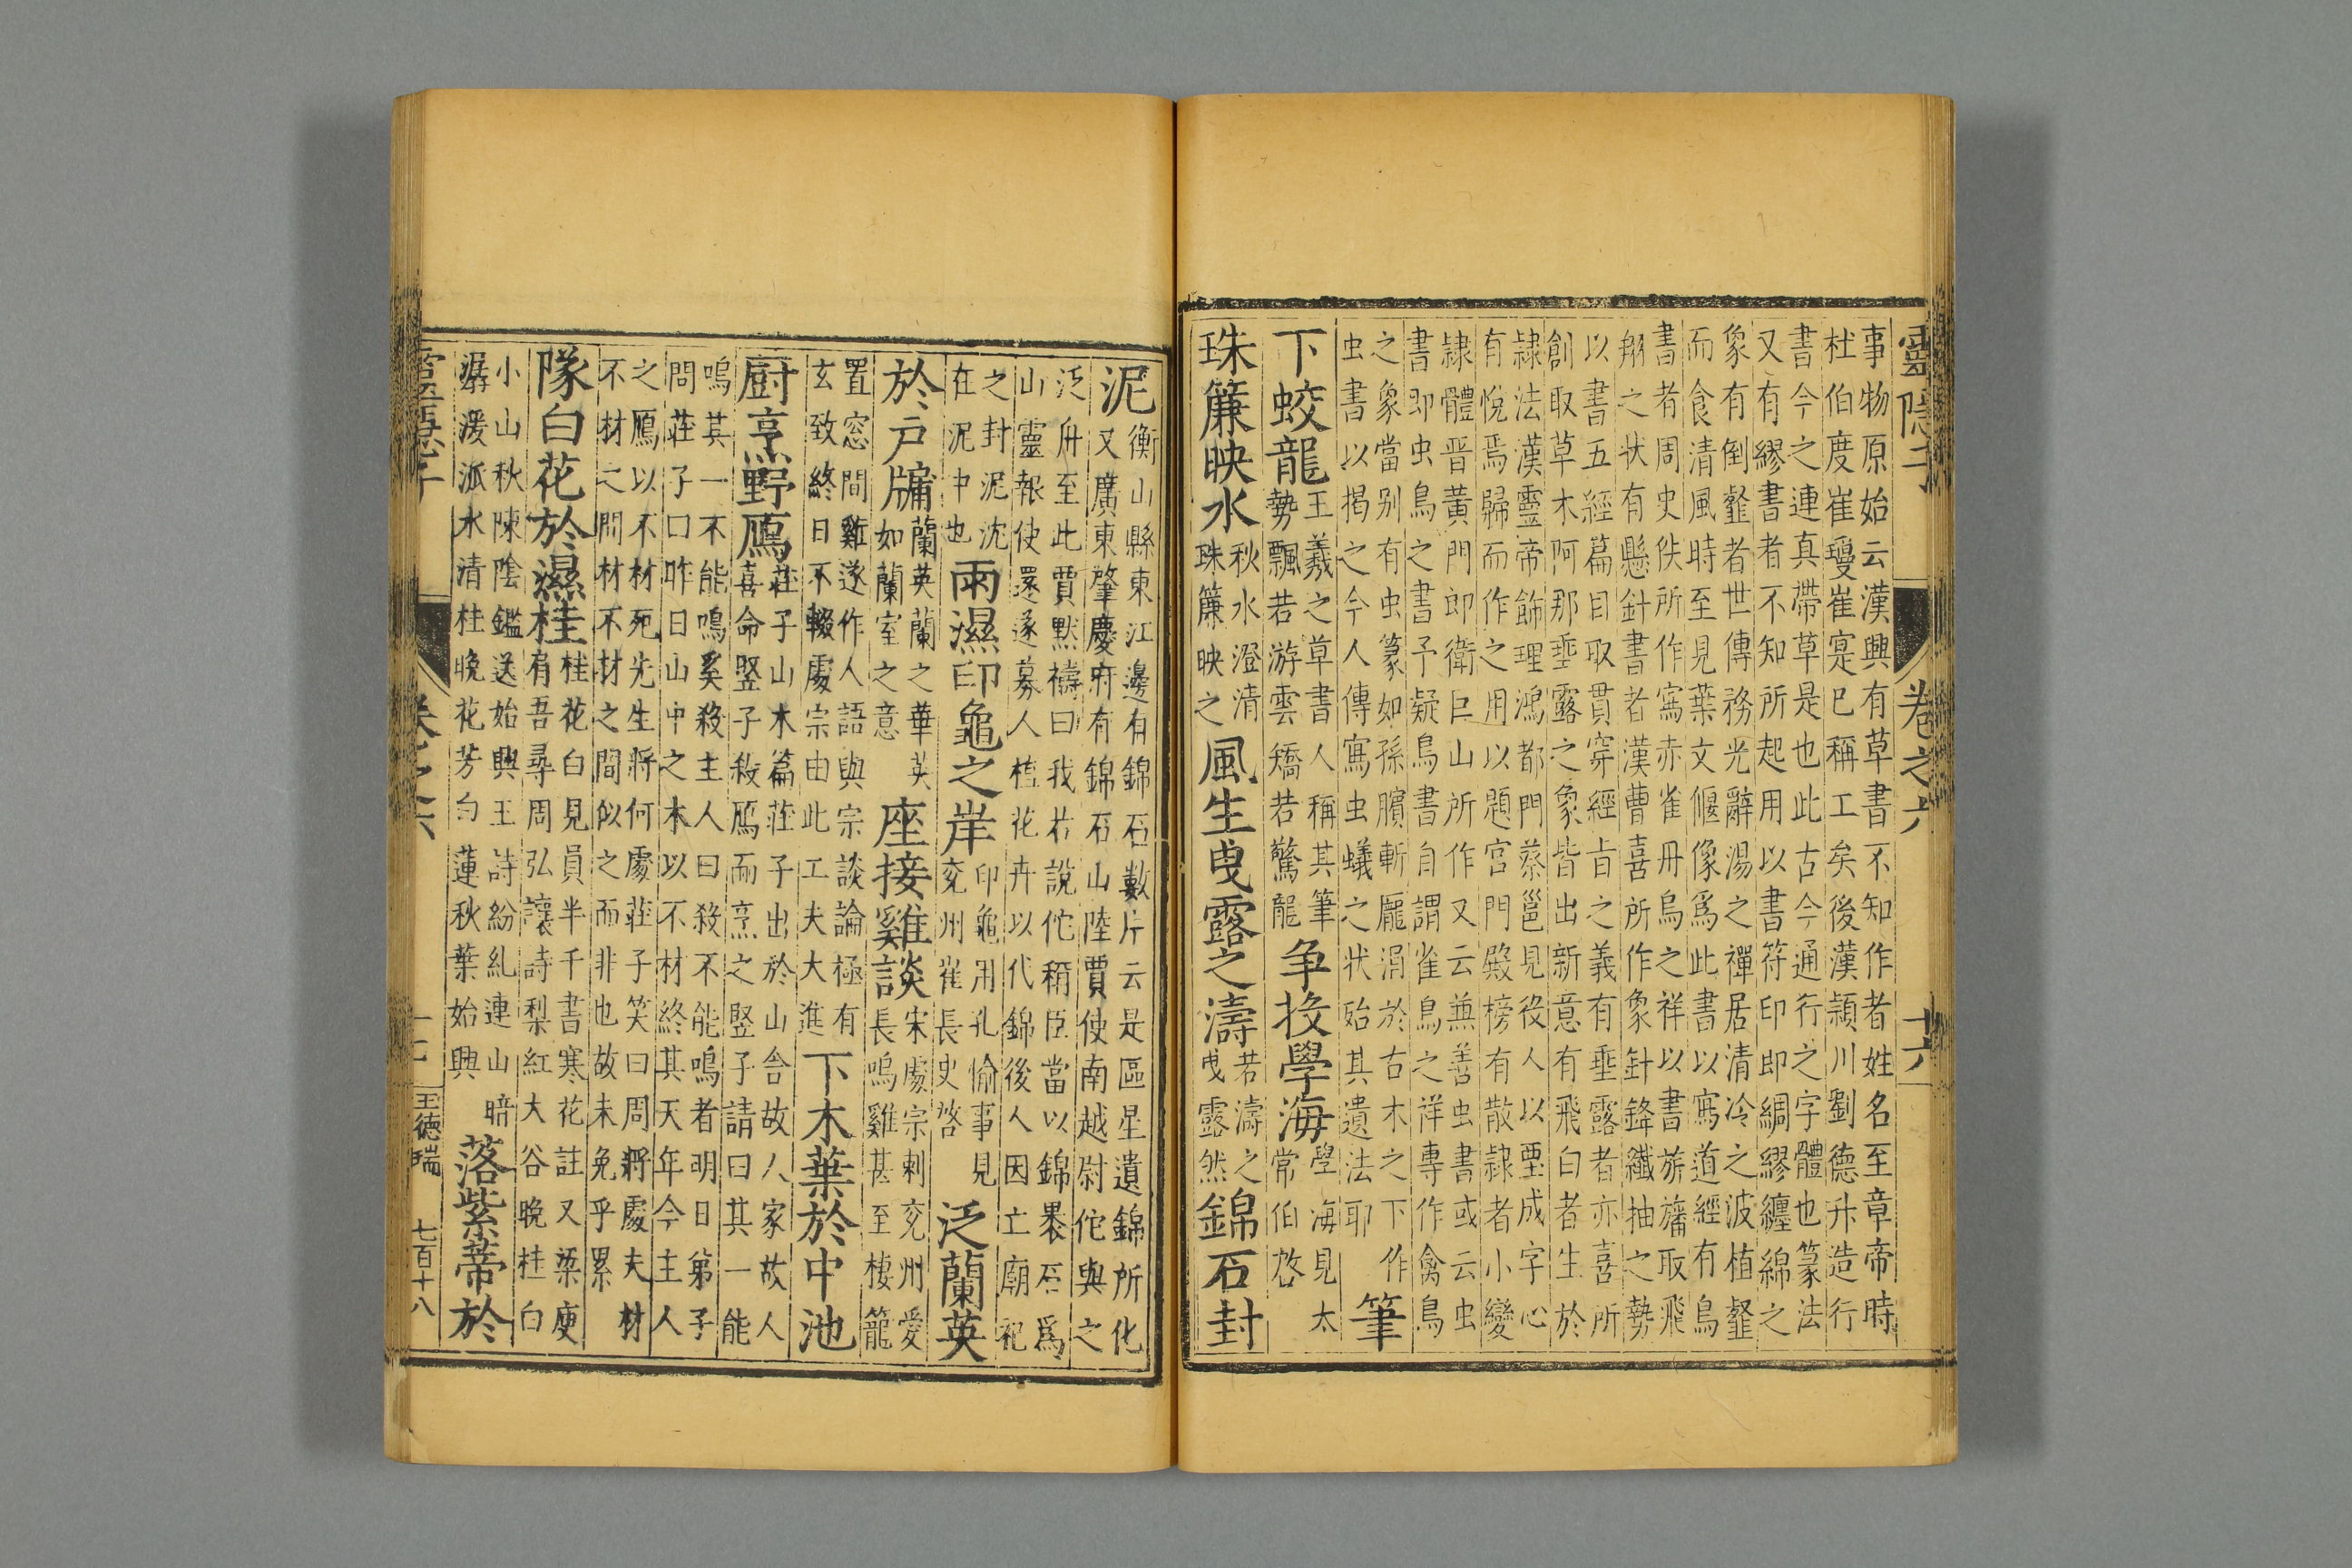 靈隱子
卷之六
十六
事物原始云漢興有草書不知作者姓名至章帝時
杜伯度崔瑗崔寔已稱工矣後漢潁川劉德升造行
書今之連真帶草是也此古今通行之字體也篆法
又有繆書者不知所起用以書符印即綢繆纏綿之
象有倒薤者世傳務光辭湯之禪居清冷之波植薤
而食清風時至見葉文偃像爲此書以寫道經有鳥
書者周史佚所作寫赤雀丹烏之祥以書旂旛取飛
翔之狀有懸針書者漢曹喜所作象針鋒纖抽之勢
以書五經篇目取貫穿經旨之義有垂露者亦喜所
創取草木阿那垂露之象皆出新意有飛白者生於
隸法漢靈帝飾理鴻都門蔡邕見役人以堊成字心
有悅焉歸而作之用以題宮門殿榜有散隸者小變
隸體晉黃門郎衛巨山所作又云兼善虫書或云虫
書即虫鳥之書予疑鳥書自謂雀鳥之祥專作禽鳥
之象當別有虫篆如孫臏斬龐涓於古木之下作
虫書以揭之今人傳寫虫蟻之狀殆其遺法耶
筆
下蛟龍
王羲之草書人稱其筆
勢飄若游雲矯若驚龍
爭投學海
學海見太
常伯啓
珠簾映水
秋水澄清
珠簾映之
風生曳露之濤
若濤之
曳露然
錦石封
泥
衡山縣東江邊有錦石數片云是區星遺錦所化
又廣東肇慶府有錦石山陸賈使南越尉佗與之
泛舟至此賈默禱曰我若說佗稱臣當以錦褁石爲
山靈報使還遂募人植花卉以代錦後人因立廟祀
之封泥沈
在泥中也
雨濕印龜之岸
印龜用孔愉事見
兖州崔長史啓
泛蘭英
於戶牖
蘭英蘭之華英
如蘭室之意
座接雞談
宋處宗刺兖州愛
長鳴雞甚至棲籠
置窓間雞遂作人語與宗談論極有
玄致終日不輟處宗由此工夫大進
下木葉於中池
厨烹野鴈
莊子山木篇莊子出於山舍故人家故人
喜命竪子殺鴈而烹之竪子請曰其一能
鳴其一不能鳴奚殺主人曰殺不能鳴者明日弟子
問莊子曰昨日山中之木以不材終其天年今主人
之鴈以不材死先生將何處莊子笑曰周將處夫材
不材之間材不材之間似之而非也故未免乎累
隊白花於濕桂
桂花白見員半千書寒花註又梁庾
肩吾尋周弘讓詩梨紅大谷晚桂白
小山秋陳陰鑑送始興王詩紛糺連山暗
潺湲派水清桂晚花芳白蓮秋葉始興
落紫蒂於
卷之六
王德瑞
七百十八